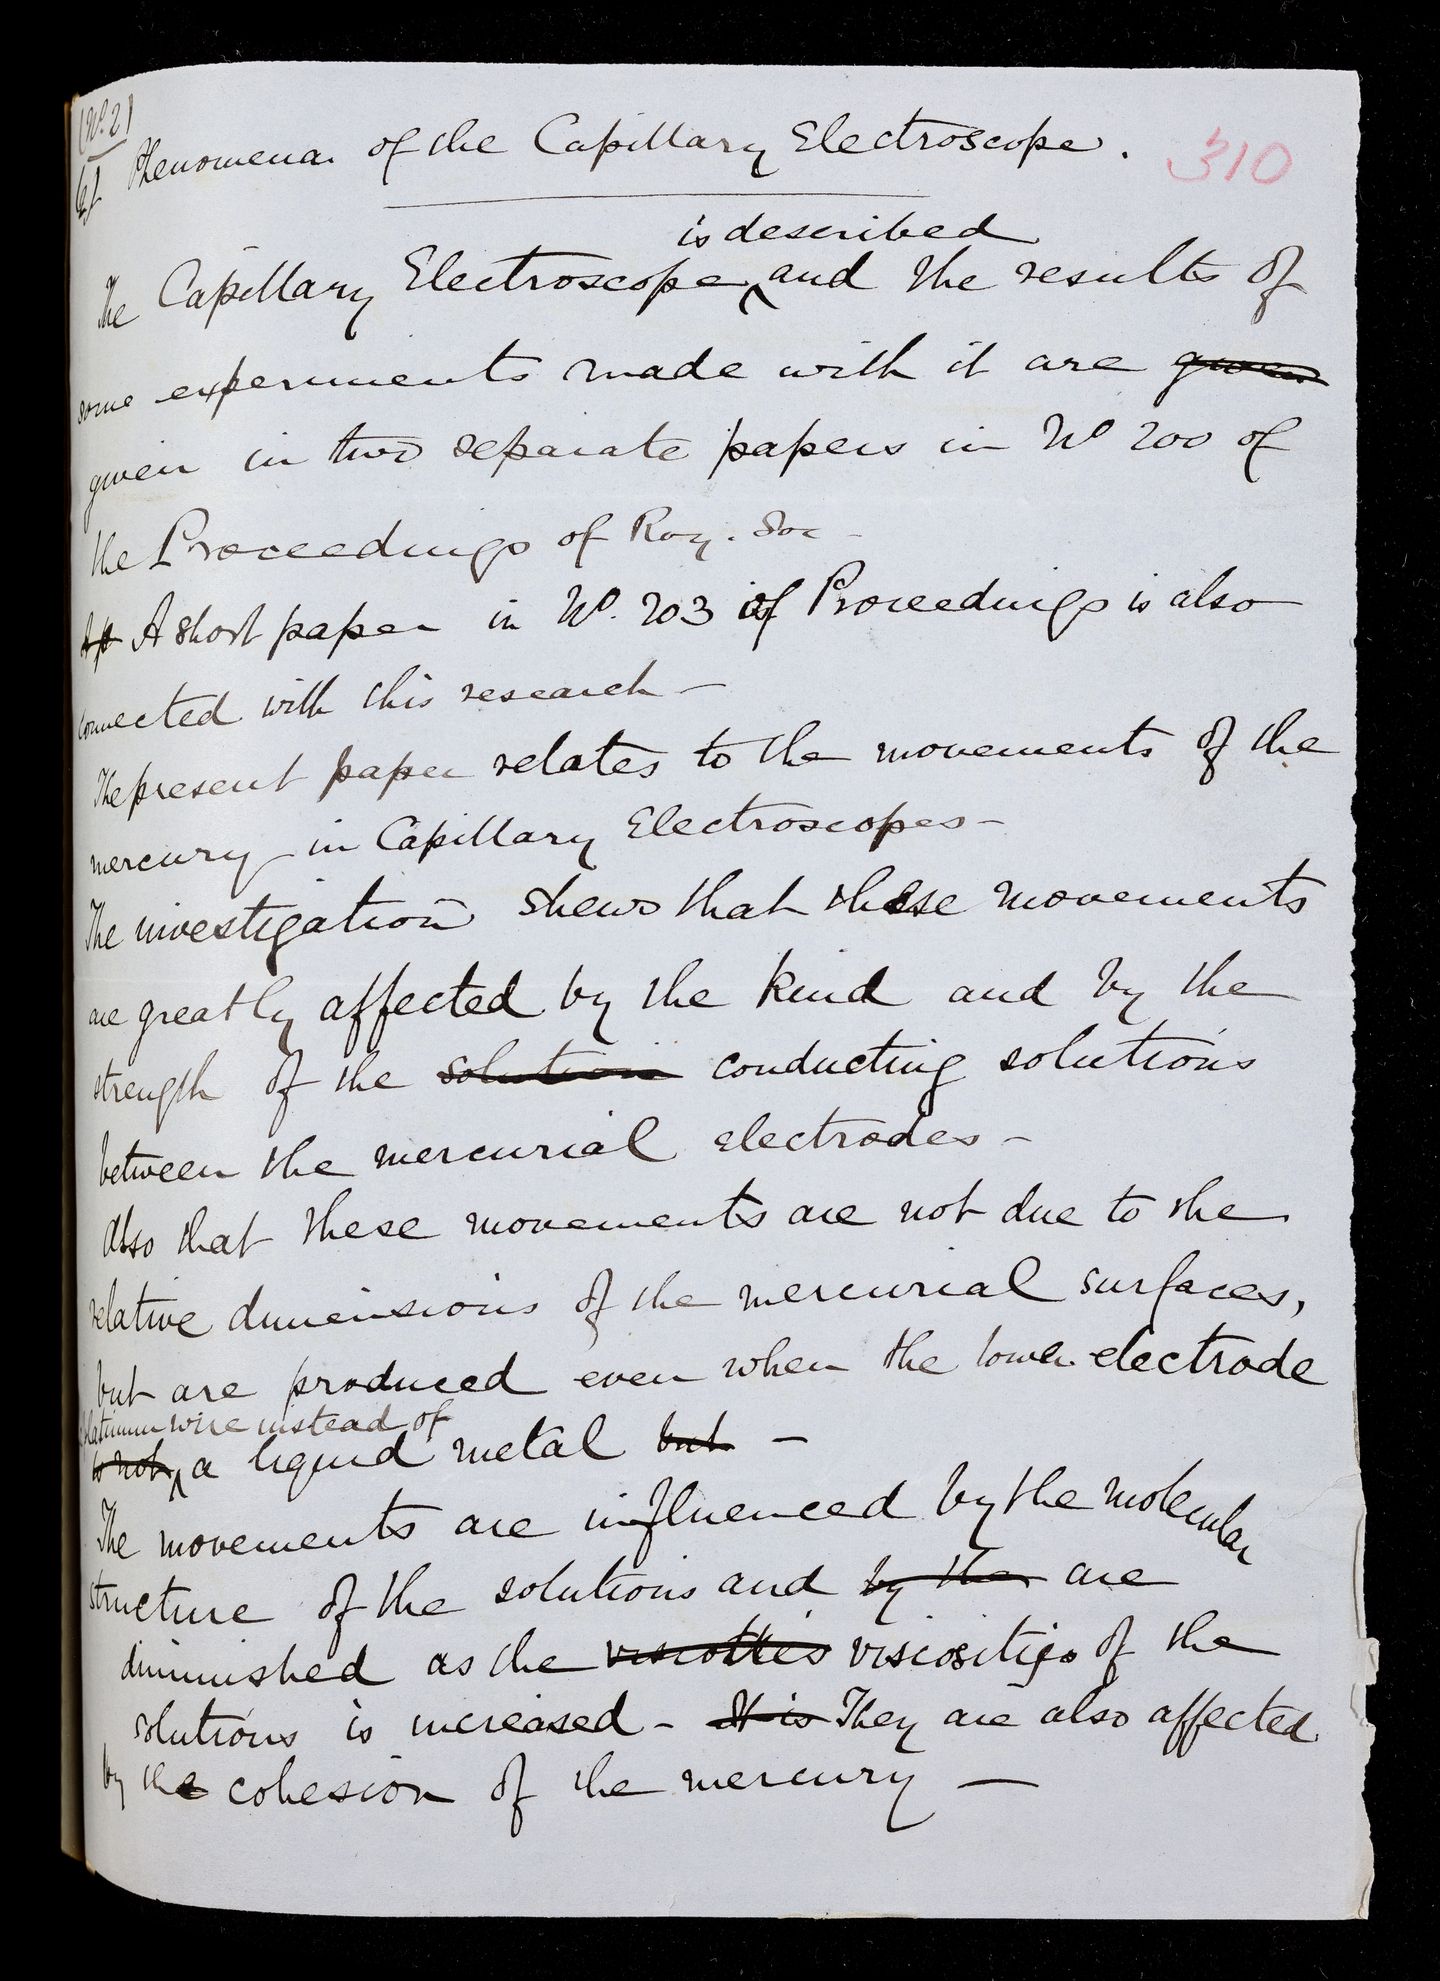 (No. 2)
Phenomena of the Capillary Electroscope.
310
is described
The Capillary Electroscope and the results of
some experiments made with it are given
given in two separate papers in No 200 of
the Proceedings of Roy. Soc -
A short paper in No. 203 of Proceedings is also
connected with this research -
The present paper relates to the movements of the
mercury in Capillary Electroscopes -
The investigation shews that these movements
are greatly affected by the kind and by the
strength of the solutions conducting solutions
between the mercurial electrodes -
Also that these movements are not due to the
relative dimensions of the mercurial surfaces,
but are produced even when the lower electrode
platinum wire instead of
is not a liquid metal but -
The movements are influenced by the molecular
structure of the solutions and by the are
diminished as the viscoties viscositys of the
solutions is increased - It is They are also affected
by the cohesion of the mercury —